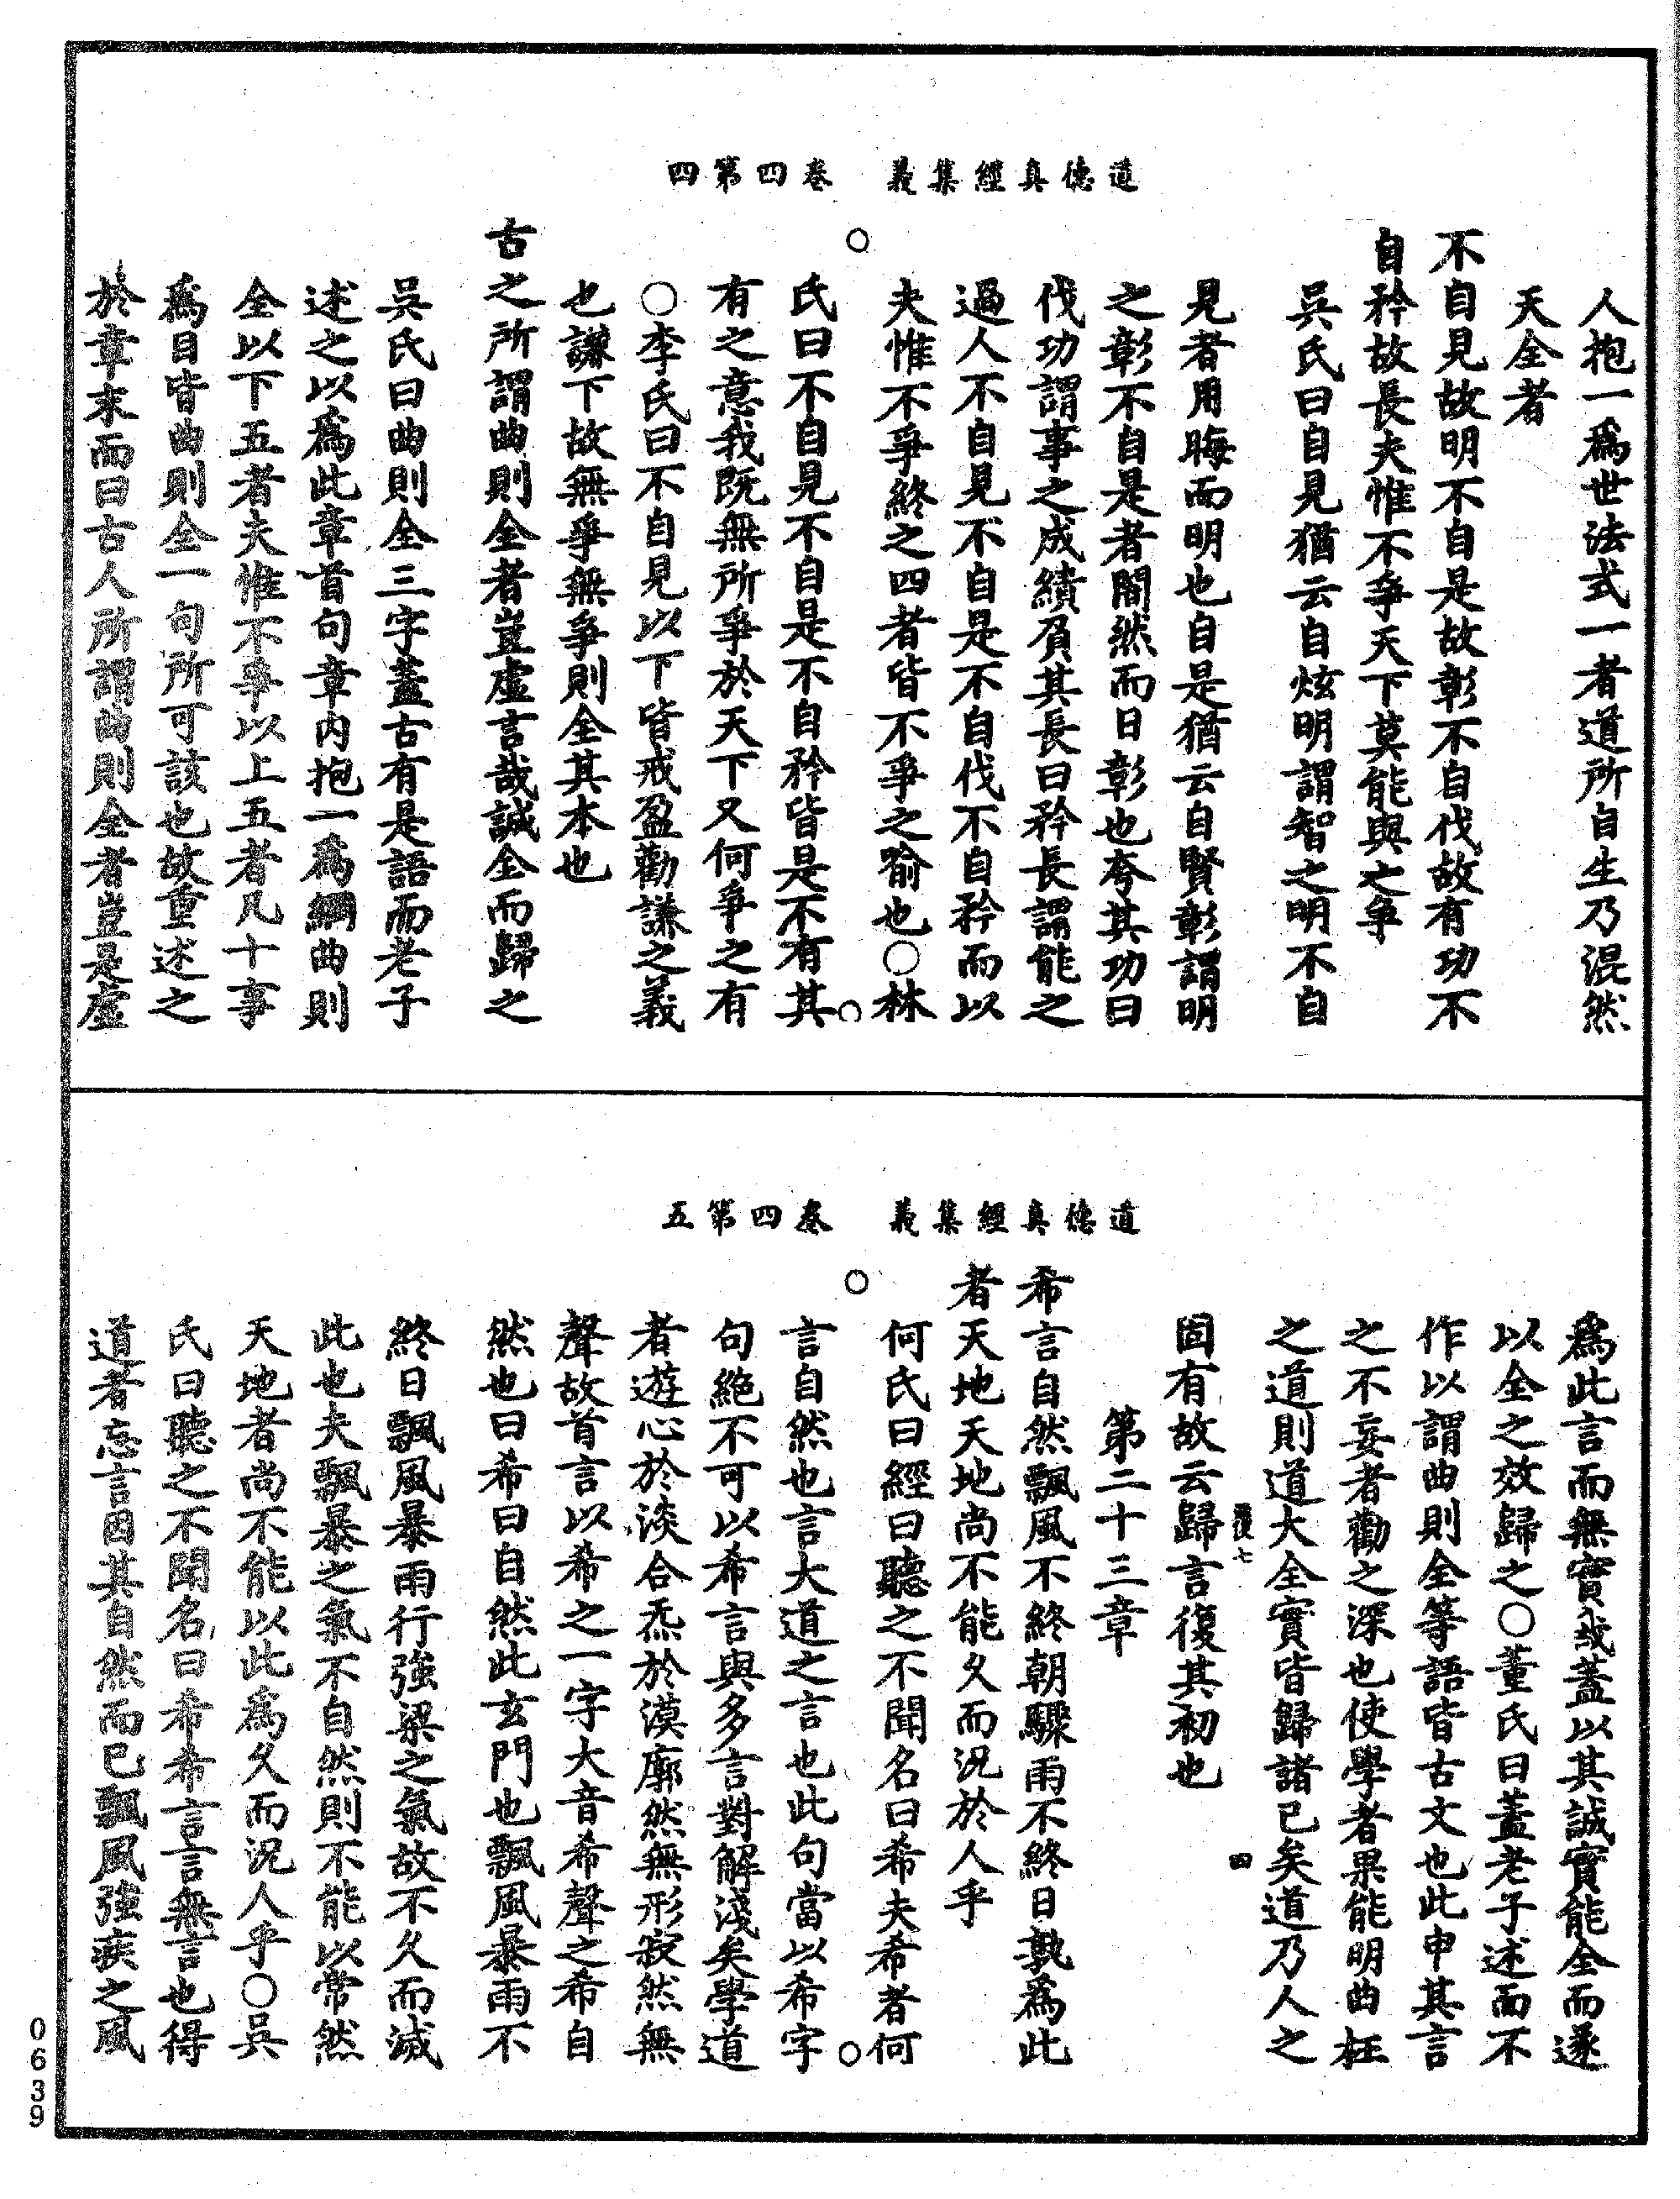 道德真經集義　卷四第四
人抱一爲世法式一者道所自生乃混然
天全者
不自見故明不自是故彰不自伐故有功不
自矜故長夫惟不爭天下莫能與之爭
吳氏曰自見猶云自炫明謂智之明不自
見者用晦而明也自是猶云自賢彰謂明
之彰不自是者闇然而日彰也夸其功曰
伐功謂事之成績負其長曰矜長謂能之
過人不自見不自是不自伐不自矜而以
夫惟不爭終之四者皆不爭之喻也○林
氏曰不自見不自是不自矜皆是不有其
有之意我既無所爭於天下又何爭之有
○李氏曰不自見以下皆戒盈勸謙之義
也謙下故無爭無爭則全其本也
古之所謂曲則全者豈虛言哉誠全而歸之
吳氏曰曲則全三字蓋古有是語而老子
述之以爲此章首句章內抱一爲綱曲則
全以下五者夫惟不爭以上五者凡十事
爲目皆曲則全一句所可該也故重述之
於章末而曰古人所謂曲則全者豈是虛
道德真經集義　卷四第五
爲此言而無實哉蓋以其誠實能全而遂
以全之效歸之○董氏曰蓋老子述而不
作以謂曲則全等語皆古文也此申其言
之不妄者勸之深也使學者果能明曲枉
之道則道大全實皆歸諸己矣道乃人之
固有故云歸言復其初也
第二十三章
希言自然飄風不終朝驟雨不終日孰爲此
者天地天地尚不能久而況於人乎
何氏曰經曰聽之不聞名曰希夫希者何
言自然也言大道之言也此句當以希字
句絕不可以希言與多言對解淺矣學道
者遊心於淡合炁於漠廓然無形寂然無
聲故首言以希之一字大音希聲之希自
然也曰希曰自然此玄門也飄風暴雨不
終日飄風暴雨行強梁之氣故不久而減
此也夫飄暴之氣不自然則不能以常然
天地者尚不能以此爲久而況人乎○吳
氏曰聽之不聞名曰希希言言無言也得
道者忘言因其自然而已飄風強疾之風
四
0639